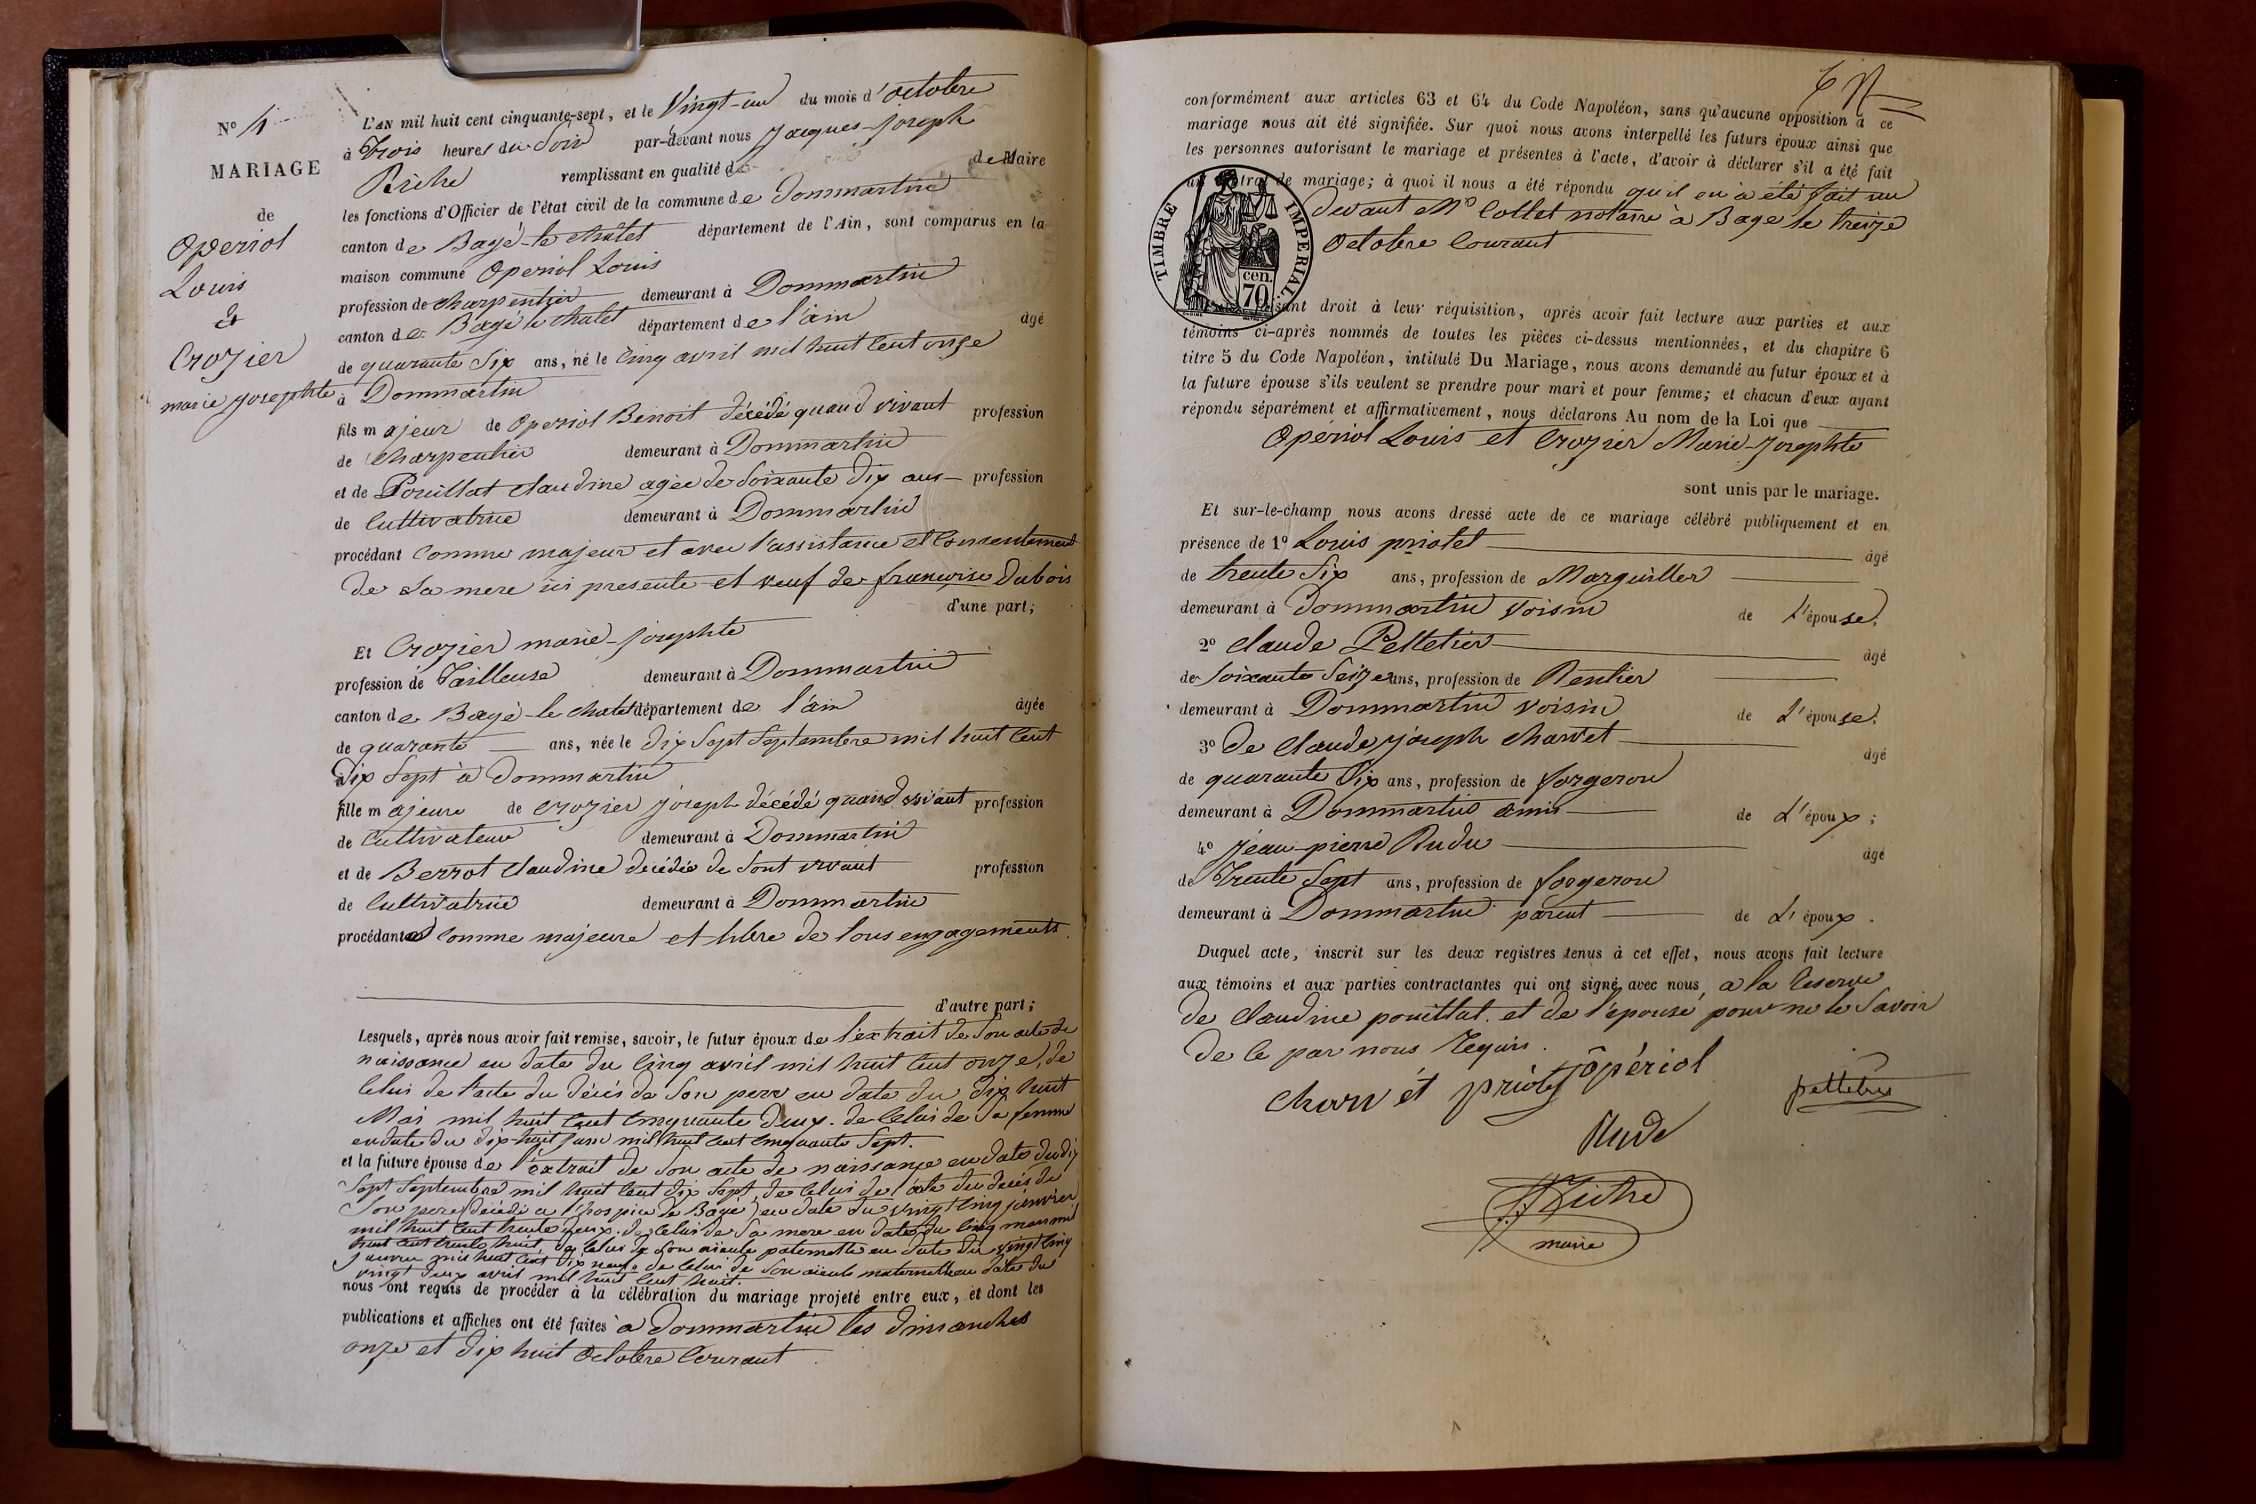 N° 4
MARIAGE
de
Operiol
Louis
&
Crozier
marie josephte
L'AN mil huit cent cinquante-sept, et le Vingt-un du mois d'octobre
à Trois heures du Soir par-devant nous Jacques-Joseph
remplissant en qualité de Maire
les fonctions d'Officier de l'état civil de la commune de Dommartin
canton de Bagé-le-châtel département de l'Ain, sont comparus en la
maison commune Operiol Louis
profession de charpentier demeurant à Dommartin
canton de Bagé le chatel département de l'ain âgé
de quarante Six ans, né le Cinq avril mil huit Cent onze
à Dommartin
fils majeur de Operiol Benoit décédé quand vivant profession
de Charpentier demeurant à Dommartin
et de Pouillat Claudine agée de Soixante Dix ans profession
de Cultivatrice demeurant à Dommartin
procédant Comme majeur et avec l'assistance et Consentement
de Sa mere ici presente et veuf de françoise Dubois
d'une part;
Et Crozier marie-josephte
profession de Tailleuse demeurant à Dommartin
canton de Bagé-le chatel département de l'ain âgée
de quarante ans, née le dix Sept Septembre mil huit Cent
dix Sept à Dommartin
fille majeure de Crozier joseph décédé quand vivant profession
de Cultivateur demeurant à Dommartin
et de Berrot Claudine decédée de Sont vivant profession
de Cultivatrice demeurant à Dommartin
procédante Comme majeure et libre de tous engagements.
d'autre part;
Lesquels, après nous avoir fait remise, savoir, le futur époux de l'extrait de Son acte de
naissance en date du Cinq avril mil huit Cent onze, de
Celui de l'acte du décés de Son pere en date du dix huit
Mai mil huit Cent Cinquante Deux. de Celui de Sa femme
en date du dix-huit juin mil huit Cent Cinquante Sept.
et la future épouse de l'extrait de Son acte de naissance en date du dix
Sept Septembre mil huit Cent dix Sept, de Celui de l'acte du decés de
Son pere (décédé a l'hospice de Bagé) en date du vingt Cinq janvier
mil huit Cent trente deux. de Celui de Sa mere en date du Cinq mars mil
huit Cent trente huit de Celui de Son aieule paternelle en date du vingt Cinq
janvier mil huit Cent Dix neuf. de Celui de Son aieule maternelle en date du
vingt deux avril mil huit Cent huit.
nous ont requis de procéder à la célébration du mariage projeté entre eux, et dont les
publications et affiches ont été faites à Dommartin les dimanches
onze et dix huit Octobre Courant
conformément aux articles 63 et 64 du Code Napoléon, sans qu'aucune opposition à ce
mariage nous ait été signifiée. Sur quoi nous avons interpellé les futurs époux ainsi que
les personnes autorisant le mariage et présentes à l'acte, d'avoir à déclarer s'il a été fait
un contrat de mariage; à quoi il nous a été répondu qu'il en à été fait un
Devant Me Collet notaire à Bage le treize
Octobre Courant
TIMBRE IMPERIAL
70 cen.
faisant droit à leur réquisition, après avoir fait lecture aux parties et aux
témoins ci-après nommés de toutes les pièces ci-dessus mentionnées, et du chapitre 6
titre 5 du Code Napoléon, intitulé Du Mariage, nous avons demandé au futur époux et à
la future épouse s'ils veulent se prendre pour mari et pour femme; et chacun d'eux ayant
répondu séparément et affirmativement, nous déclarons Au nom de la Loi que
Opériol Louis et Crozier Marie-Josephte
sont unis par le mariage.
Et sur-le-champ nous avons dressé acte de ce mariage célébré publiquement et en
présence de 1° Louis priotet âgé
de trente Six ans, profession de Marguiller
demeurant à Dommartin voisin de L'épouse,
2° Claude Pelletier âgé
de Soixante Seize ans, profession de Rentier
demeurant à Dommartin voisin de L'épouse,
3° de Claude joseph Charvet âgé
de quarante Six ans, profession de forgeron
demeurant à Dommartin amis de L'époux;
4° Jean-pierre Rude âgé
de Trente Sept ans, profession de forgeron
demeurant à Dommartin parent de L'époux.
Duquel acte, inscrit sur les deux registres tenus à cet effet, nous avons fait lecture
aux témoins et aux parties contractantes qui ont signé avec nous, a la reserve
de Claudine pouillat. et de l'épouse, pour ne le Savoir
de Ce par nous Requis.
charvét priotet ôpériol pelletier
Rude
maire